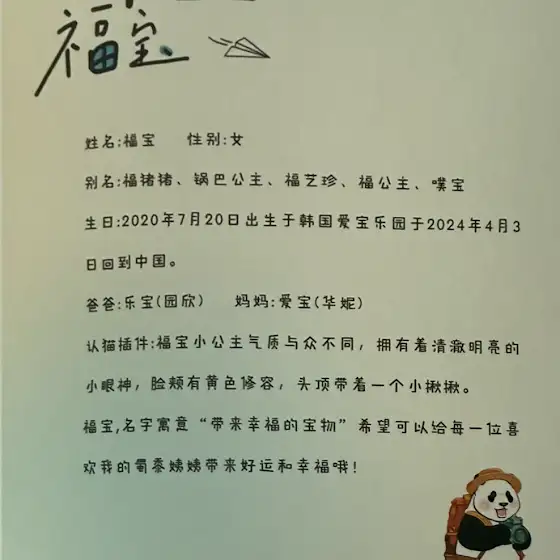 福宝
姓名:福宝 性别:女
别名:福猪猪、锅巴公主、福艺珍、福公主、噗宝
生日:2020年7月20日出生于韩国爱宝乐园于2024年4月3
日回到中国。
爸爸:乐宝(园欣) 妈妈:爱宝(华妮)
认猫插件:福宝小公主气质与众不同，拥有着清澈明亮的
小眼神，脸颊有黄色修容，头顶带着一个小揪揪。
福宝,名字寓意“带来幸福的宝物”希望可以给每一位喜
欢我的蜀黍姨姨带来好运和幸福哦!